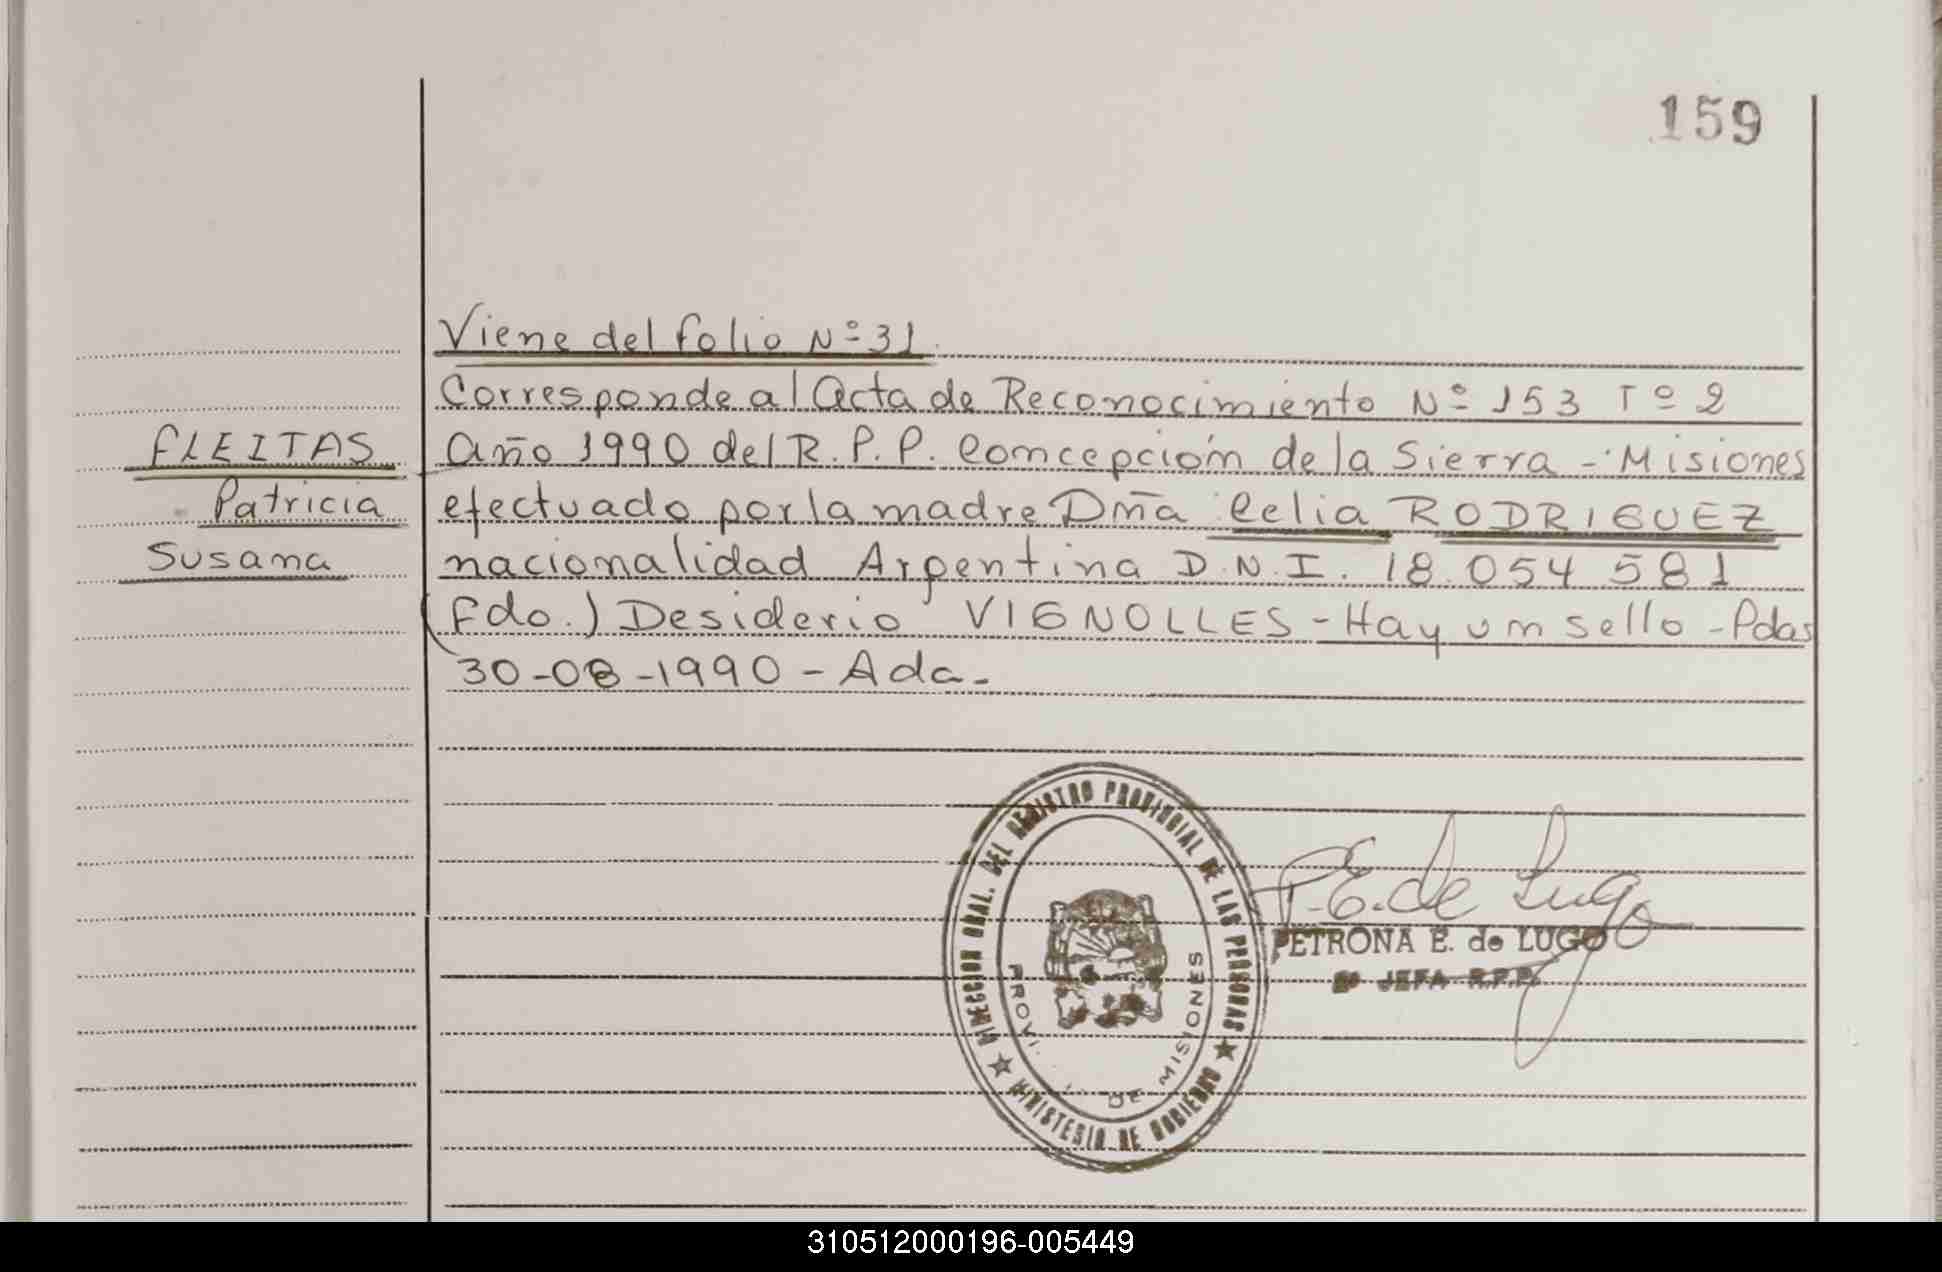 159
Viene del folio Nº 31.
Corresponde al Acta de Reconocimiento Nº 153 Tº 2
FLEITAS
Año 1990 del R.P.P. Concepción de la Sierra - Misiones
Patricia
efectuado por la madre Dña Celia RODRIGUEZ
Susana
nacionalidad Argentina D.N.I. 18.054 581
Fdo.) Desiderio VIGNOLLES - Hay un sello - Pdas
30-08-1990 - Ada.-
DIRECCION GRAL. DEL REGISTRO PROVINCIAL DE LAS PERSONAS
MINISTERIO DE GOBIERNO
DE MISIONES
P.E. de Lugo
PETRONA E. de LUGO
JEFA R.P.P.
310512000196-005449